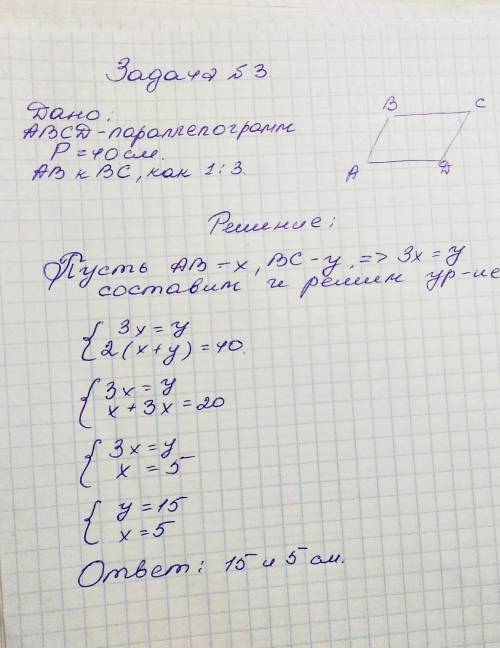 Задача №3
Дано:
ABCD-параллелограмм
P = 40 см.
AB к BC, как 1:3.
B C
A D
Решение:
Пусть AB-x, BC-y, => 3x=y
составим и решим ур-ие
{ 3x = y
2(x+y) = 40.
{ 3x = y
x + 3x = 20
{ 3x = y
x = 5
{ y = 15
x = 5
Ответ: 15 и 5 см.